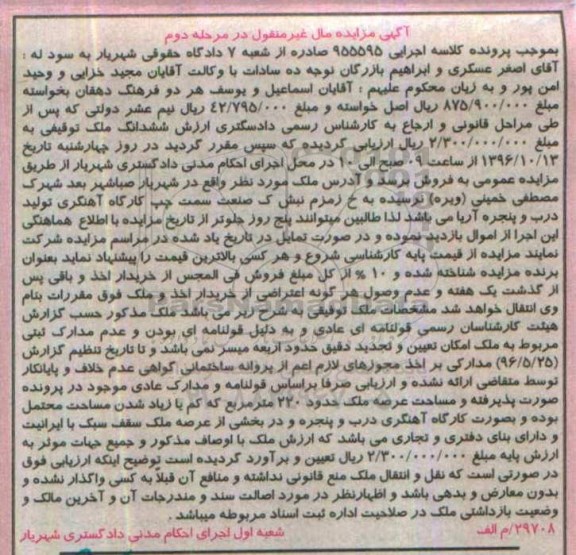 آگهی مزایده مال غیرمنقول در مرحله دوم
بموجب پرونده کلاسه اجرایی ۹۵۵۵۹۵ صادره از شعبه ۷ دادگاه حقوقی شهریار به سود له :
آقای اصغر عسکری و ابراهیم بازرگان توجه ده سادات با وکالت آقایان مجید خزایی و وحید
امن پور و به زیان محکوم علیهم : آقایان اسماعیل و یوسف هر دو فرهنگ دهقان بخواسته
مبلغ ۸۷۵/۹۰۰/۰۰۰ ریال اصل خواسته و مبلغ ۴۲/۷۹۵/۰۰۰ ریال نیم عشر دولتی که پس از
طی مراحل قانونی و ارجاع به کارشناس رسمی دادگستری ارزش ششدانگ ملک توقیفی به
مبلغ ۲/۳۰۰/۰۰۰/۰۰۰ ریال ارزیابی گردیده که سپس مقرر گردید در روز چهارشنبه تاریخ
۱۳۹۶/۱۰/۱۳ از ساعت ۰۹ صبح الی ۱۰ در محل اجرای احکام مدنی دادگستری شهریار از طریق
مزایده عمومی به فروش برسد و آدرس ملک مورد نظر واقع در شهریار صباشهر بعد شهرک
مصطفی خمینی (ویره) نرسیده به خ زمزم نبش ک صنعت سمت چپ کارگاه آهنگری تولید
درب و پنجره آریا می باشد لذا طالبین میتوانند پنج روز جلوتر از تاریخ مزایده با اطلاع هماهنگی
این اجرا از اموال بازدید نموده و در صورت تمایل در تاریخ یاد شده در مراسم مزایده شرکت
نمایند مزایده از قیمت پایه کارشناسی شروع و هر کسی بالاترین قیمت را پیشنهاد نماید بعنوان
برنده مزایده شناخته شده و ۱۰ % از کل مبلغ فروش فی المجس از خریدار اخذ و باقی پس
از گذشت یک هفته و عدم وصول هر گونه اعتراضی از خریدار اخذ و ملک فوق مقررات بنام
وی انتقال خواهد شد مشخصات ملک توقیفی به شرح زیر می باشد ملک مذکور حسب گزارش
هیئت کارشناسان رسمی قولنامه ای عادی و به دلیل قولنامه ای بودن و عدم مدارک ثبتی
مربوط به ملک امکان تعیین و تحدید دقیق حدود اربعه میسر نمی باشد و تا تاریخ تنظیم گزارش
(۹۶/۵/۲۵) مدارکی بر اخذ مجوزهای لازم اعم از پروانه ساختمانی گواهی عدم خلاف و پایانکار
توسط متقاضی ارائه نشده و ارزیابی صرفا براساس قولنامه و مدارک عادی موجود در پرونده
صورت پذیرفته و مساحت عرصه ملک حدود ۲۲۰ مترمربع که کم یا زیاد شدن مساحت محتمل
بوده و بصورت کارگاه آهنگری درب و پنجره و در بخشی از عرصه ملک سقف سبک با ایرانیت
و دارای بنای دفتری و تجاری می باشد که ارزش ملک با اوصاف مذکور و جمیع جهات موثر به
ارزش پایه مبلغ ۲/۳۰۰/۰۰۰/۰۰۰ ریال تعیین و برآورد گردیده است توضیح اینکه ارزیابی فوق
در صورتی است که نقل و انتقال ملک منع قانونی نداشته و منافع آن قبلاً به کسی واگذار نشده و
بدون معارض و بدهی باشد و اظهارنظر در مورد اصالت سند و مندرجات آن و آخرین مالک و
وضعیت بازداشتی ملک در صلاحیت اداره ثبت اسناد مربوطه میباشد .
۲۹۷۰۸/م الف شعبه اول اجرای احکام مدنی دادگستری شهریار